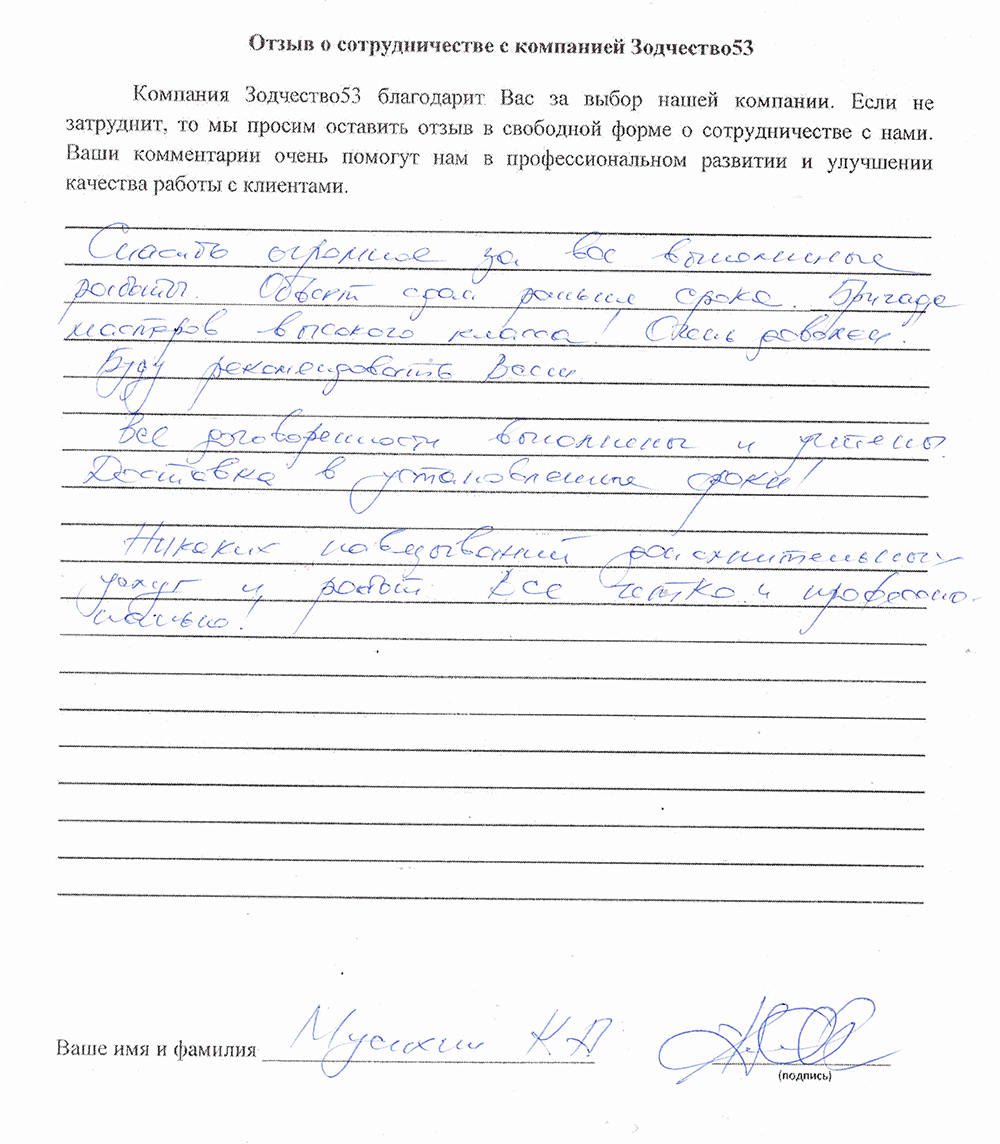 Отзыв о сотрудничестве с компанией Зодчество53
Компания Зодчество53 благодарит Вас за выбор нашей компании. Если не
затруднит, то мы просим оставить отзыв в свободной форме о сотрудничестве с нами.
Ваши комментарии очень помогут нам в профессиональном развитии и улучшении
качества работы с клиентами.
Спасибо огромное за вас выполниные
работы. Объект сдали раньше срока. Бригада
мастеров высокого класса! Очень доволен.
Буду рекомендовать Вас
Все договоренности выполнены и учтены.
Доставка в установленные сроки!
Никаких навязываний дополнительных
услуг и работ. Все четко и професcио-
нально!
Ваше имя и фамилия Мусихин К.А
(подпись)